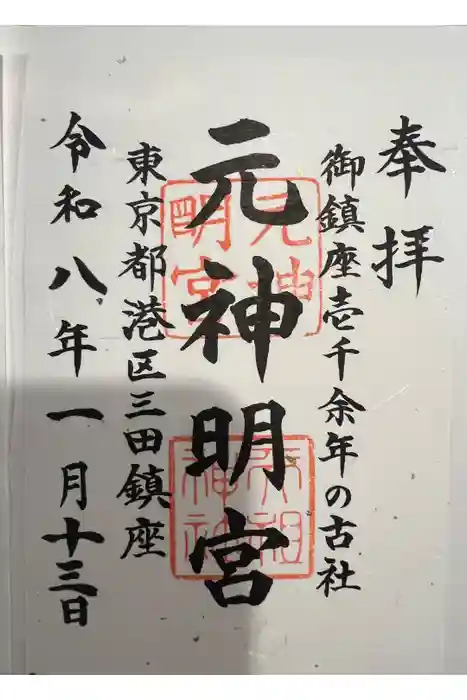 奉拝
御鎮座壱千余年の古社
元神明宮
東京都港区三田鎮座
令和八年一月十三日
元神明宮